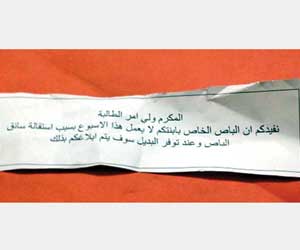 المكرم ولي امر الطالبة
نفيدكم ان الباص الخاص بابنتكم لا يعمل هذا الاسبوع بسبب استقالة سائق
الباص وعند توفر البديل سوف يتم ابلاغكم بذلك